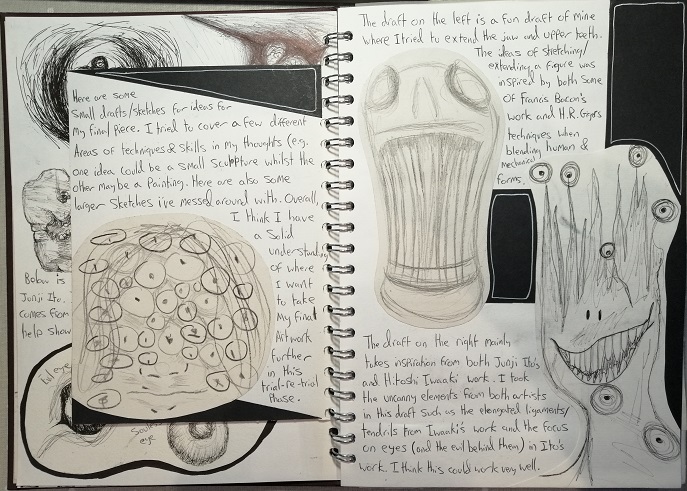 Here are some
small drafts/sketches for ideas for
my final piece. I tried to cover a few different
Areas of techniques & skills in my thoughts (e.g.
one idea could be a small sculpture whilst the
other maybe a painting. Here are also some
larger sketches i've messed around with. Overall,
I think I have
a solid
understanding
of where
I want
to take
my final
Artwork
further
in this
trial-re-trial
Phase.
Below is
Junji Ito.
comes from
help show
eye
The draft on the left is a fun draft of mine
where I tried to extend the jaw and upper teeth.
The ideas of stretching/
extending a figure was
inspired by both some
of Francis Bacon's
work and H.R. Gigers
techniques when
blending human &
mechanical
forms.
The draft on the right mainly
takes inspiration from both Junji Ito's
and Hitoshi Iwaaki work. I took
the uncanny elements from both artists
in this draft such as the elongated ligaments/
tendrils from Iwaaki's work and the focus
on eyes (and the evil behind them) in Ito's
work. I think this could work very well.